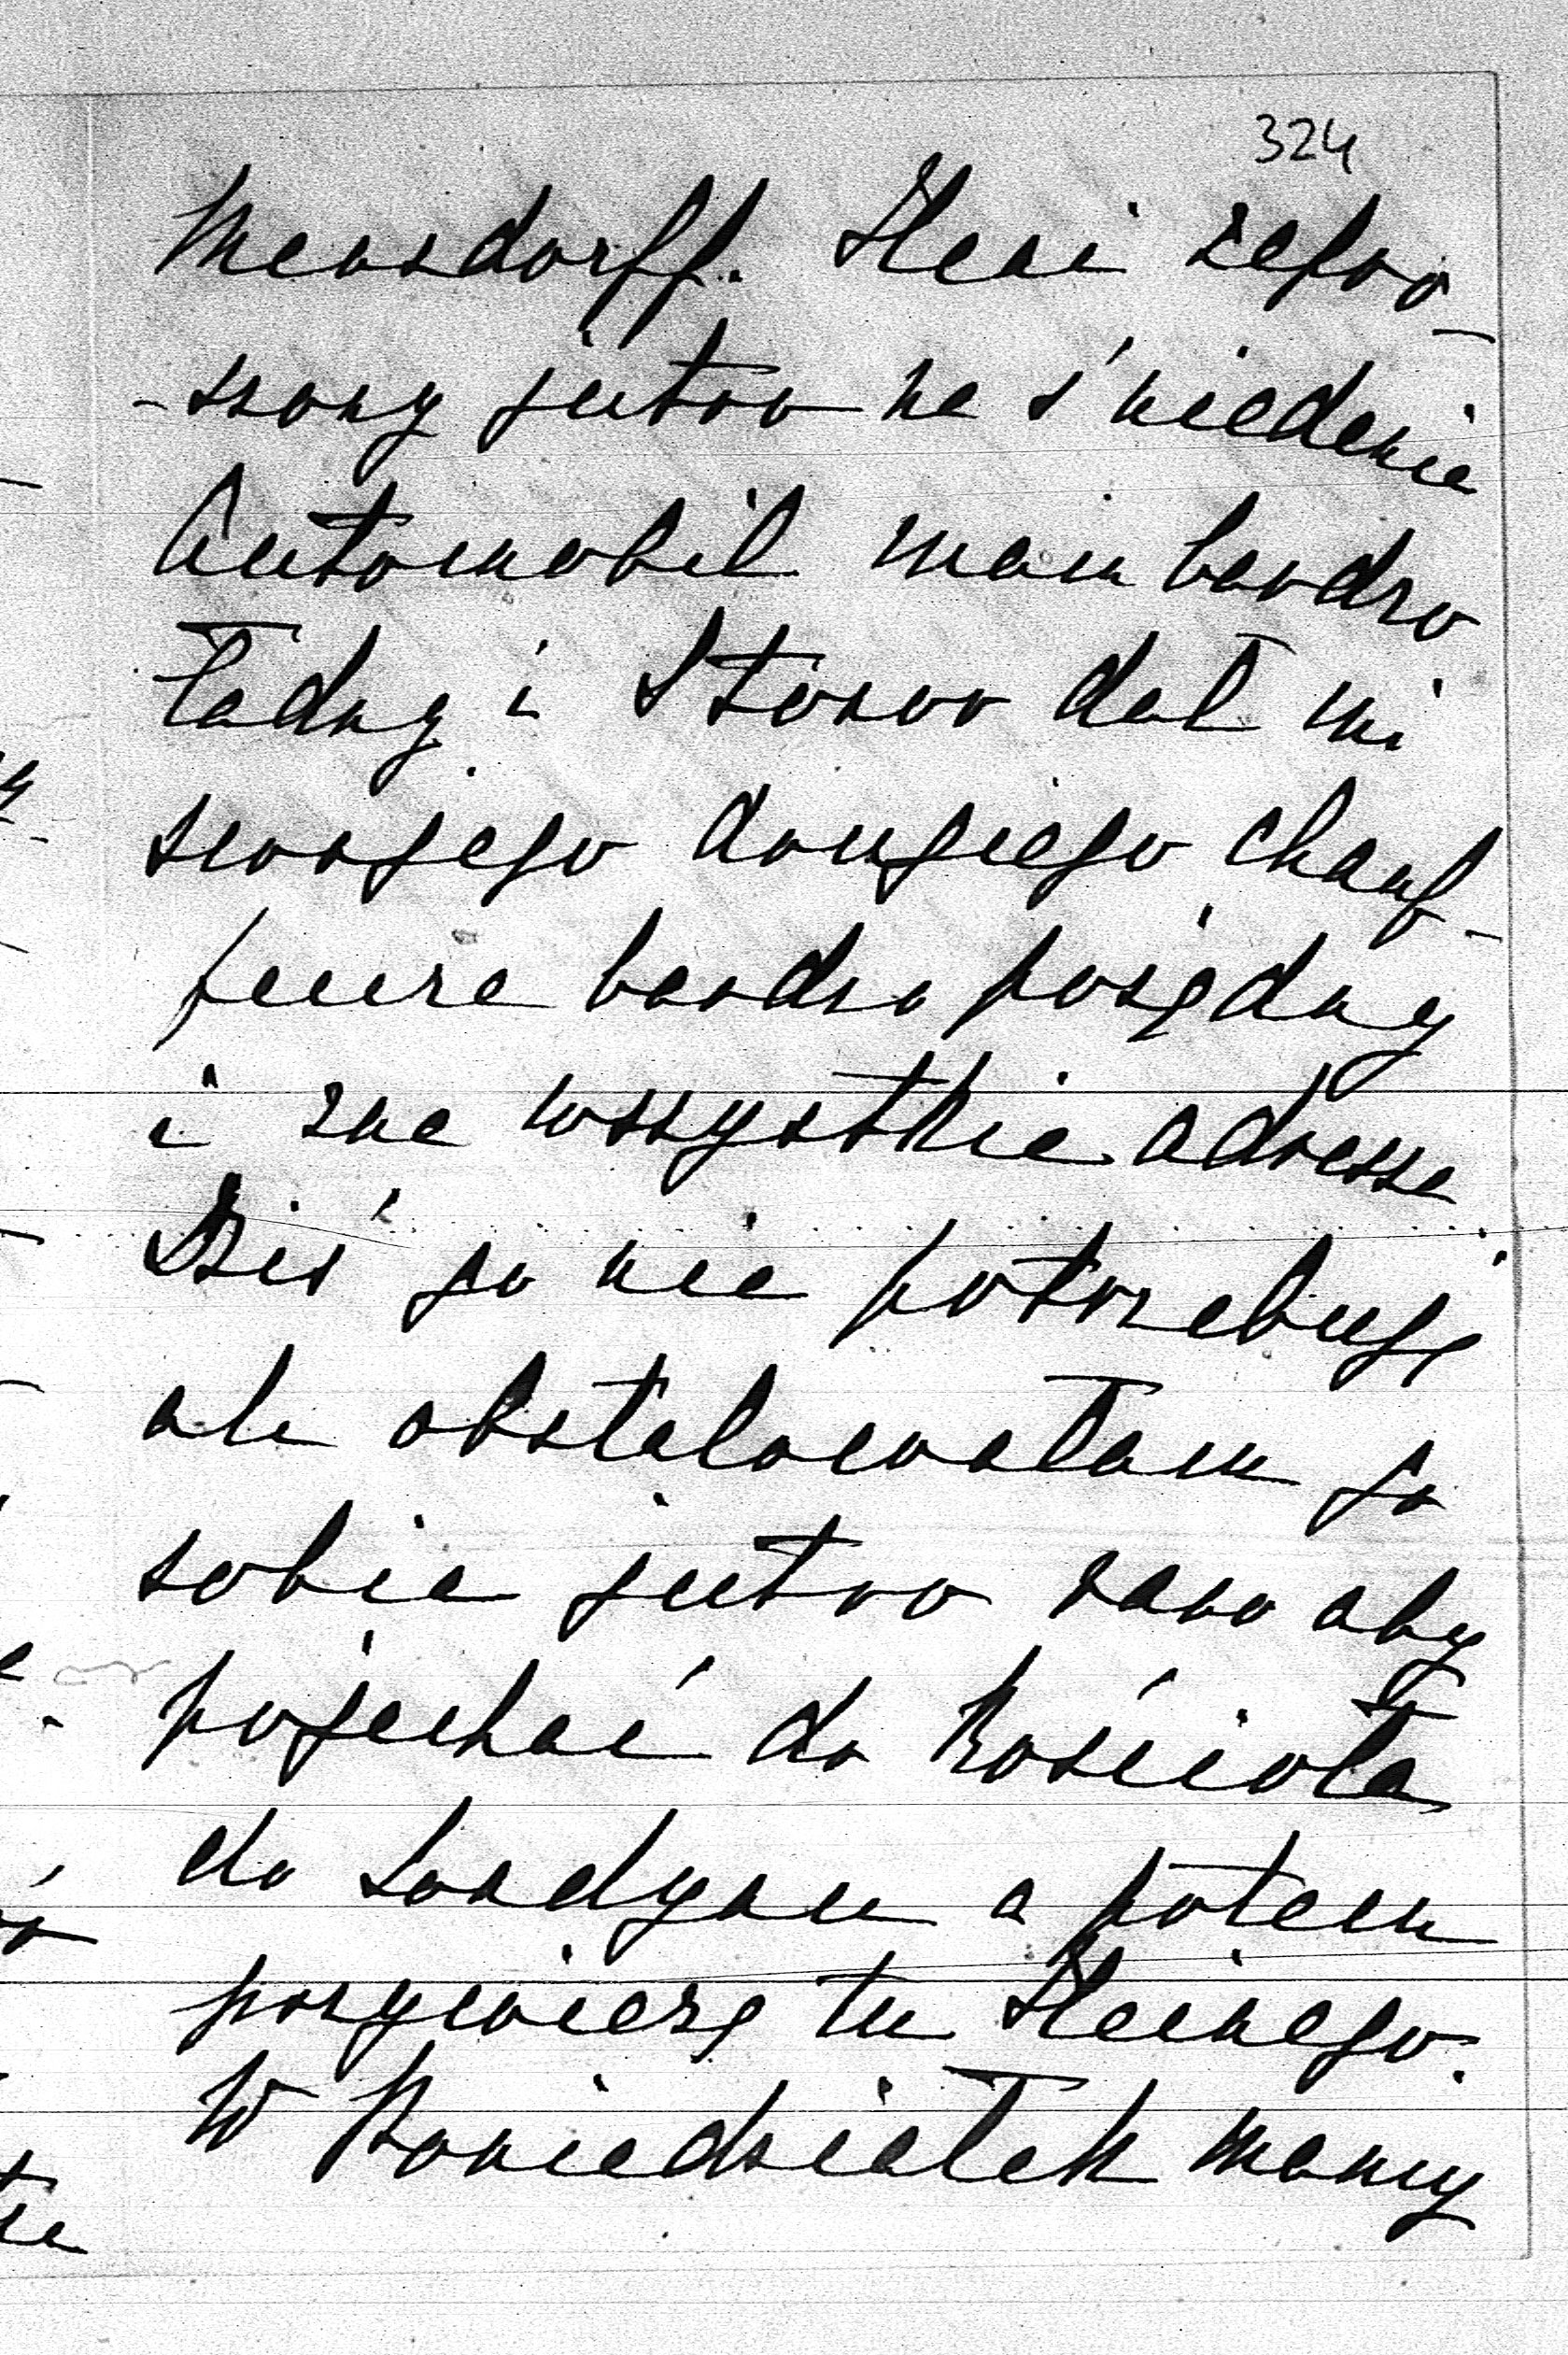 324
Mensdorff. Heni zapro-
-szony jutro na śniedanie
Automobil mam bardzo
ładny i Storov dał mi
swojego drugiego chauf-
feura bardzo porządny
i zna wszystkie adresse
Dziś go nie potrzebuję
ale obstalowałam go
sobie jutro rano aby
pojechać do kościoła
do Londynu a potem
przywierzę tu Heinego.
W Poniedziałek mamy